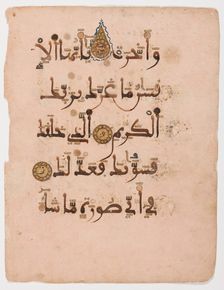 وأخرت يأيها الإ
نسن ما غرك بربك
الكريم الذي خلقك
فسويك فعدلك
في أي صورة ما شا